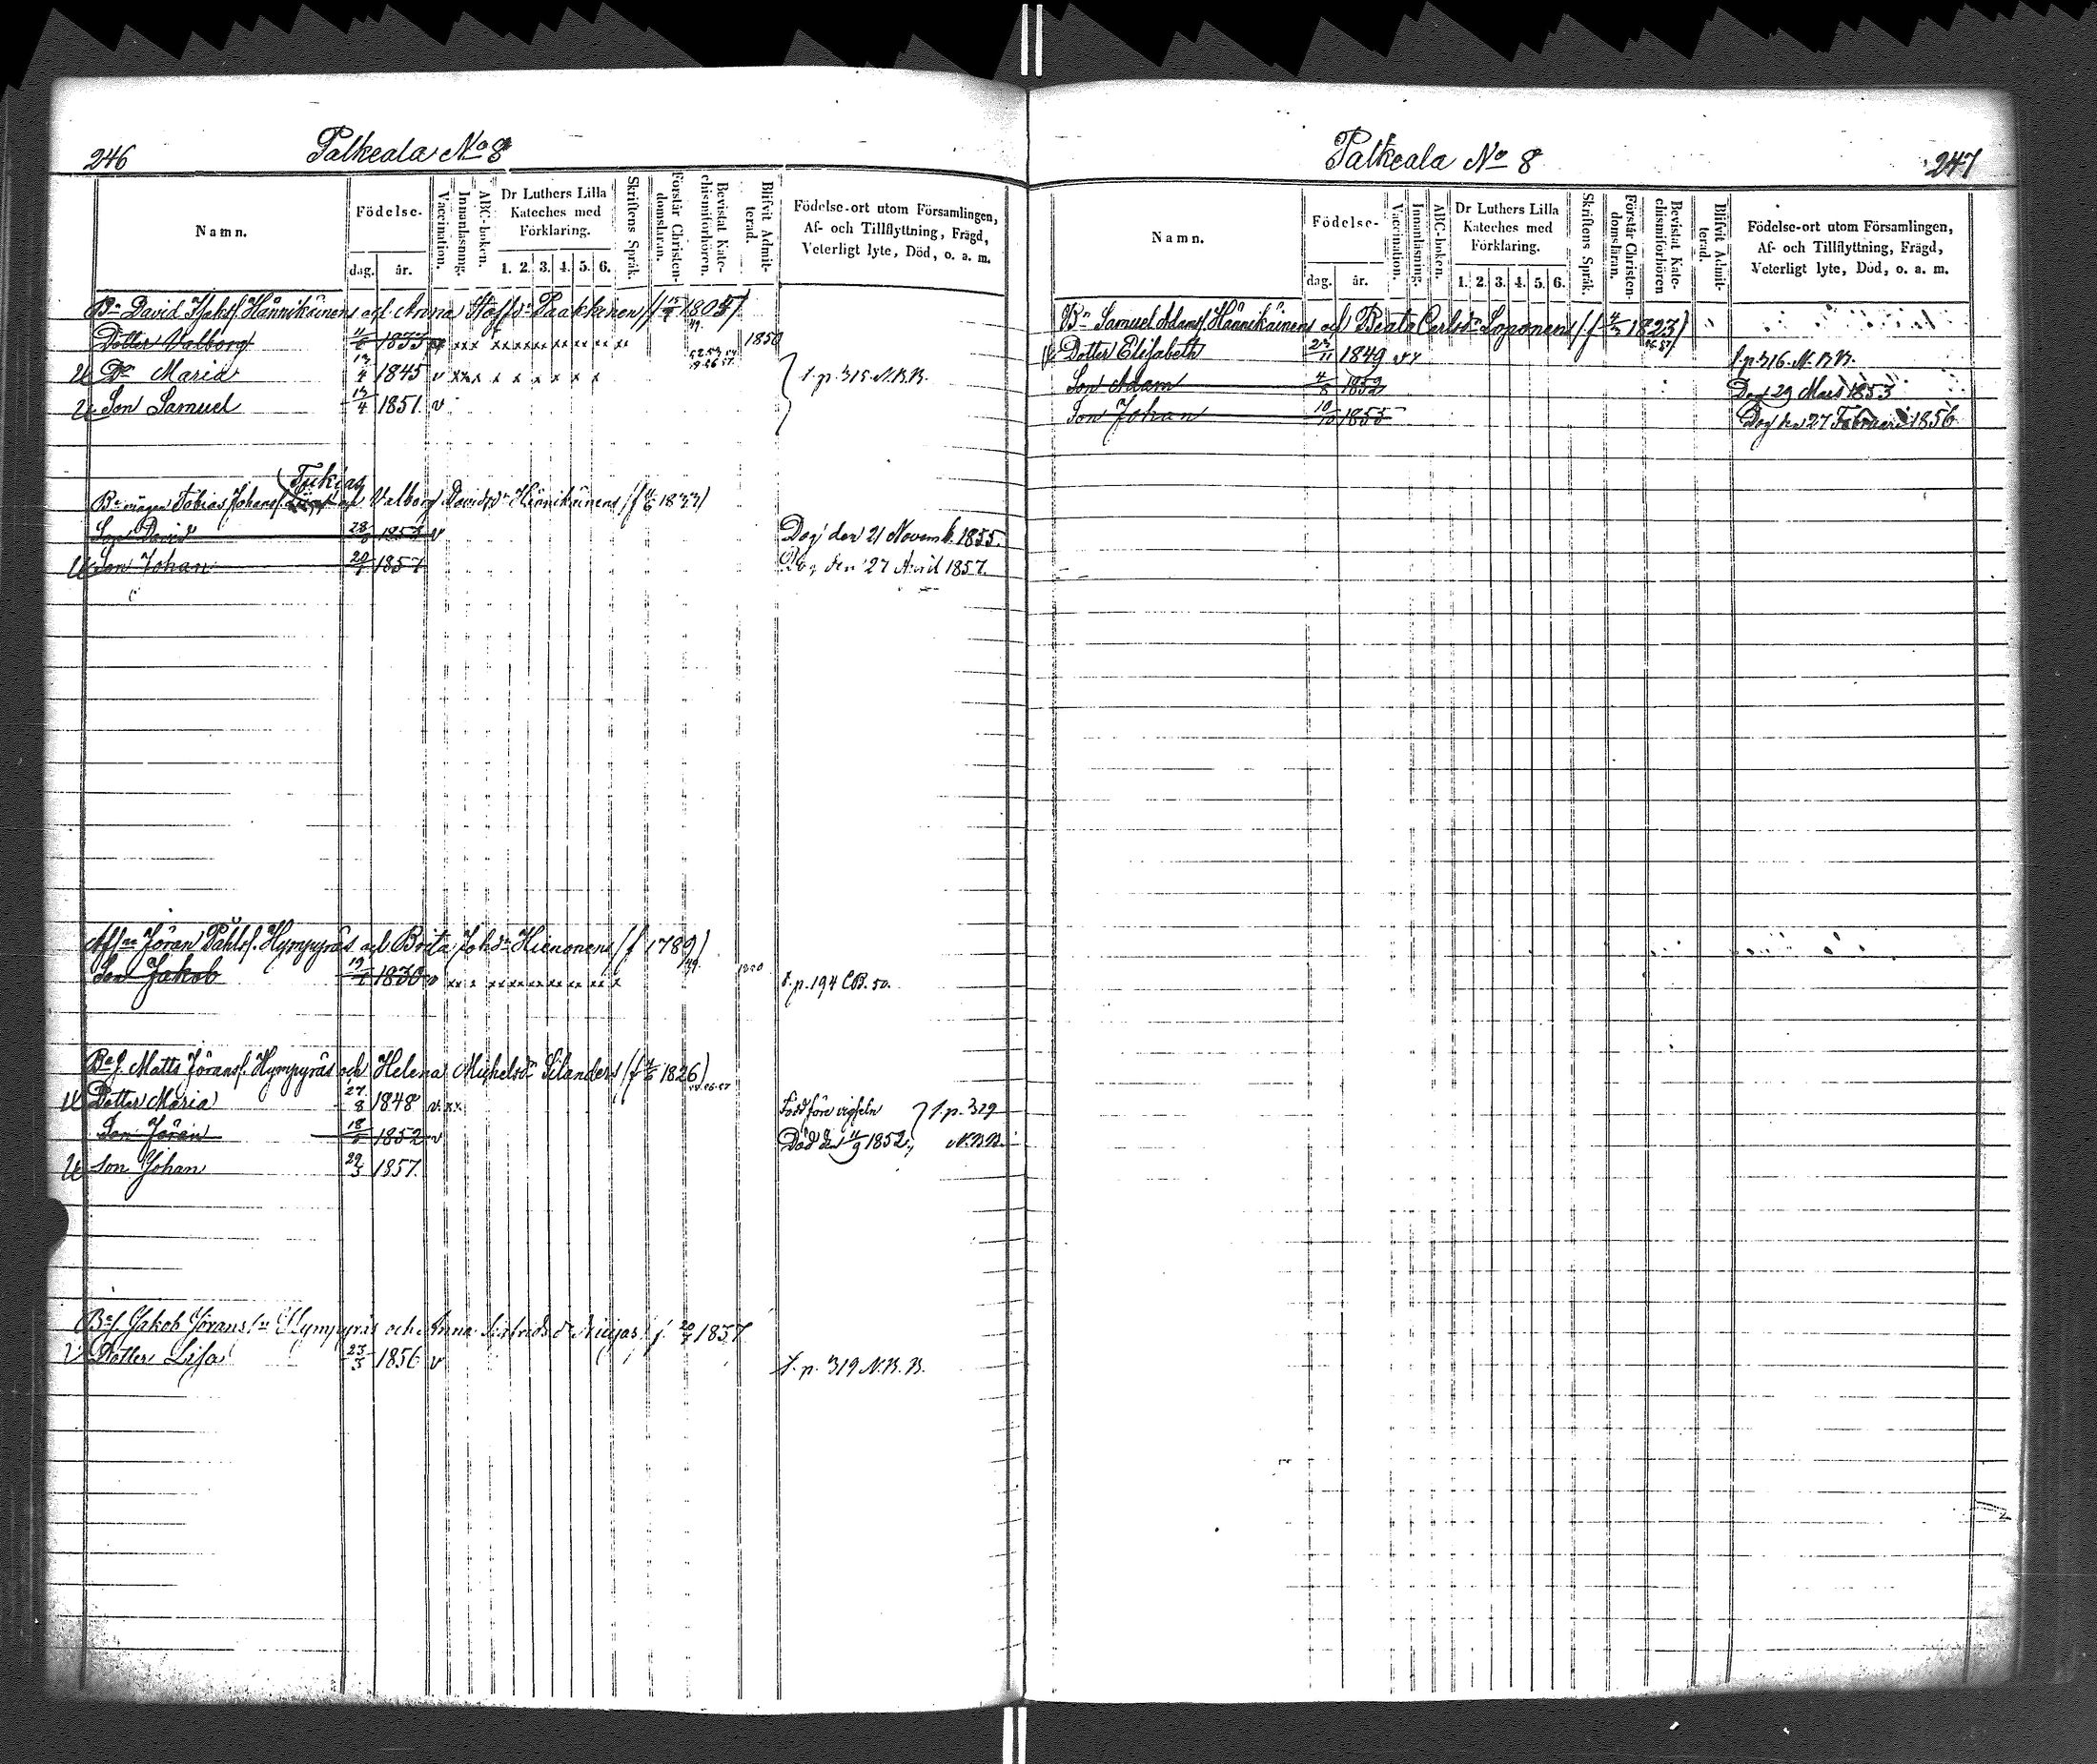 246 Palkeala No 8
Namn. Födelse- dag. år. Vaccination. Innanläsning. ABC-boken. Dr Luthers Lilla Kateches med Förklaring. 1. 2. 3. 4. 5. 6. Skriftens Språk. Förstår Christen-domsläran. Bevistat Kate-chismiförhören. Blifvit Admit-terad. Födelse-ort utom Församlingen, Af- och Tillflyttning, Frägd, Veterligt lyte, Död, o. a. m.
Bn David Hännikäinens och Anna Staffsdr Paakkinen
Dotter Valborg 1833 1850
Dr Maria 1845 v f. p. 315. N.B.B.
Son Samuel 1851. v
Tukias
Bn mågen Tobias Johansf. och Valborg Davidsdr Hännikäinens (f 1833)
Son David v Dog den 21 Novemb. 1855.
Son Johan 1857 Dog den 27 April 1857.
Jöran Påhlsf. Hympyräs och Brita Johdr Hienonens (f 1789)
Son Jakob 1830 v f. p. 194 CB. 50.
Matts Jöransf. Hympyräs och Helena Michelsdr Silanders (f 1826)
Dotter Maria 27/8 1848 v xx Född före vigseln f. p. 329
Son Jöran 1852 v Död den 11/9 1852. N.B.B.
Son Johan 29/3 1857.
Jakob Jöransf. Hympyräs och Anna f. 1837
Dotter Lisa 23/3 1856 v f. p. 319 N.B.B.
Palkeala No 8 247
Namn. Födelse- dag. år. Vaccination. Innanläsning. ABC-boken. Dr Luthers Lilla Kateches med Förklaring. 1. 2. 3. 4. 5. 6. Skriftens Språk. Förstår Christen-domsläran. Bevistat Kate-chismiförhören Blifvit Admit-terad. Födelse-ort utom Församlingen, Af- och Tillflyttning, Frägd, Veterligt lyte, Död, o. a. m.
Bn Samuel Adamsf. Hännikäinens och Beata Carlsdr Loponens (f 1823)
Dotter Elisabeth 23/11 1849 f. p. 316. N.B.B.
Son Adam 1852 Dog 29 Mars 1853
Son Johan 10/10 1855 Dog den 27 Februari 1856